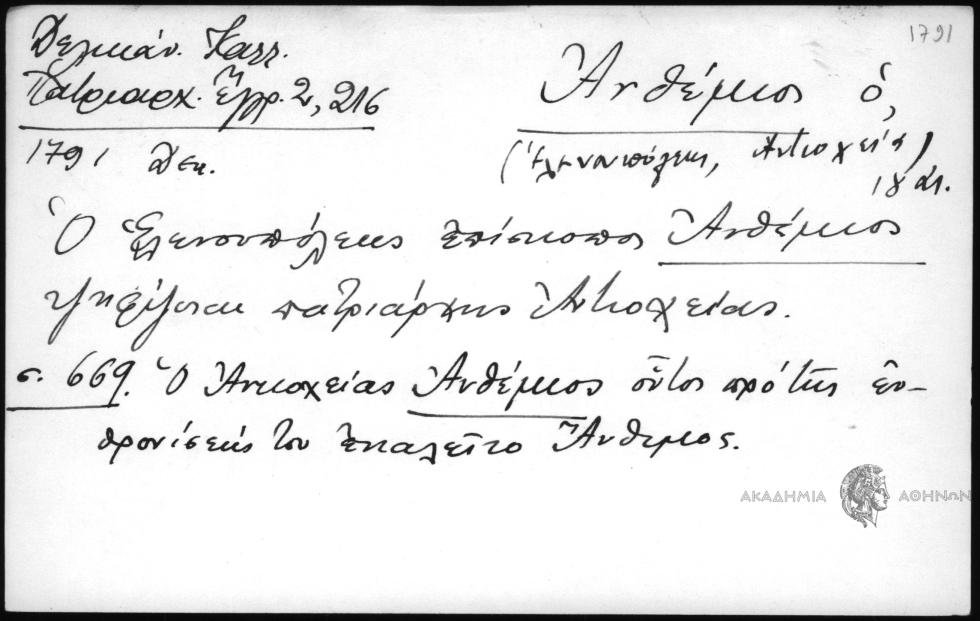 1791
Δελικάν. Καλλ.
Πατριαρχ. Ἔγγρ. 2, 216
1791 Δεκ.
Ἀνθέμιος ὁ,
(Ἑλενουπόλεως, Ἀντιοχείας)
18 αἰ.
Ὁ Ἑλενουπόλεως ἐπίσκοπος Ἀνθέμιος
ψηφίζεται πατριάρχης Ἀντιοχείας.
σ. 669. Ὁ Ἀντιοχείας Ἀνθέμιος οὗτος πρὸ τῆς ἐν-
θρονίσεώς του ἐκαλεῖτο Ἄνθιμος.
ΑΚΑΔΗΜΙΑ ΑΘΗΝΩΝ